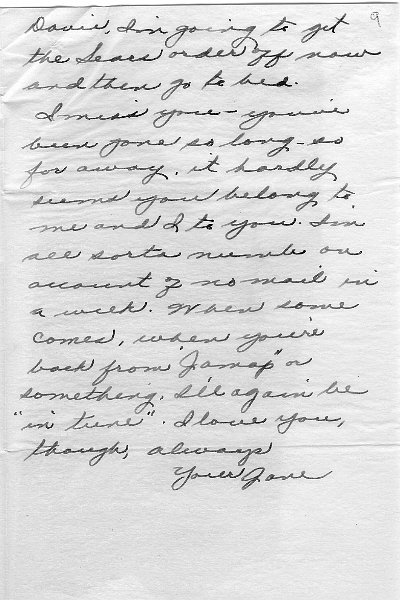 9
Davie, I'm going to get
the Sears order off now
and then go to bed.
I miss you – you've
been gone so long – so
far away, it hardly
seems you belong to
me and I to you. I'm
all sorta numb on
account of no mail in
a week. When some
comes, when you're
back from "Jamap" or
something, I'll again be
"in tune". I love you,
though, always
Your Jane